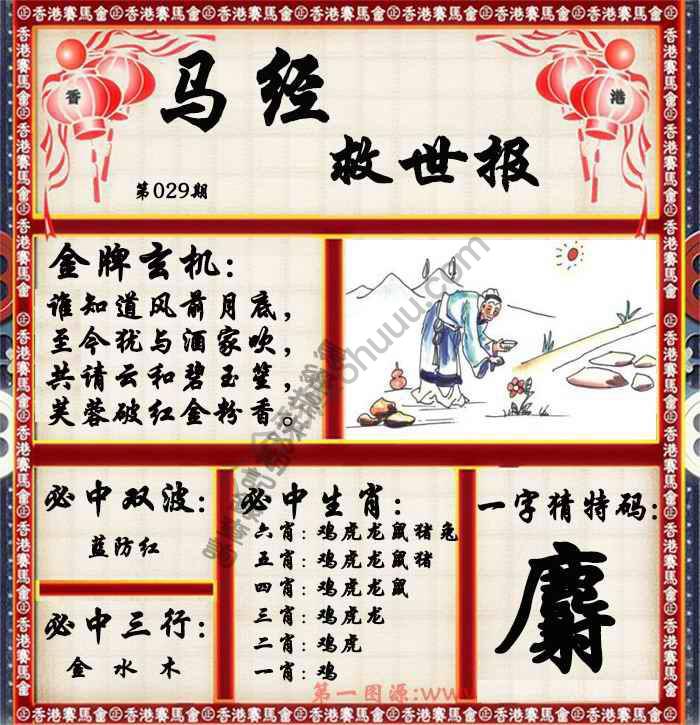 香港賽馬會
香
港
马经
救世报
第029期
金牌玄机：
谁知道风前月底，
至今犹与酒家吹，
共请云和碧玉笙，
芙蓉破红金粉香。
必中双波：
蓝防红
必中三行：
金 水 木
必中生肖：
六肖：鸡虎龙鼠猪兔
五肖：鸡虎龙鼠猪
四肖：鸡虎龙鼠
三肖：鸡虎龙
二肖：鸡虎
一肖：鸡
一字猜特码：
麝
第一图源:www